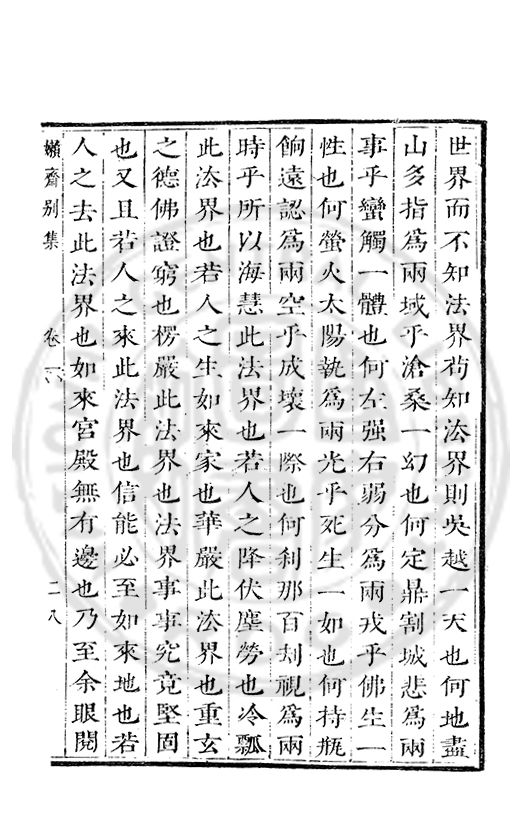 世界而不知法界苟知法界則吳越一天也何地盡
山多指爲兩域乎滄桑一幻也何定鼎割城悲爲兩
事乎蠻觸一體也何左强右弱分爲兩戎乎佛生一
性也何螢火太陽執爲兩光乎死生一如也何持瓶
餉遠認爲兩空乎成壞一際也何刹那百刼視爲兩
時乎所以海慧此法界也若人之降伏塵勞也冷瓢
此法界也若人之生如來家也華嚴此法界也重玄
之德佛證窮也楞嚴此法界也法界事事究竟堅固
也又且若人之來此法界也信能必至如來地也若
人之去此法界也如來宮殿無有邊也乃至余眼閱
嬾齋別集 卷一六 二八